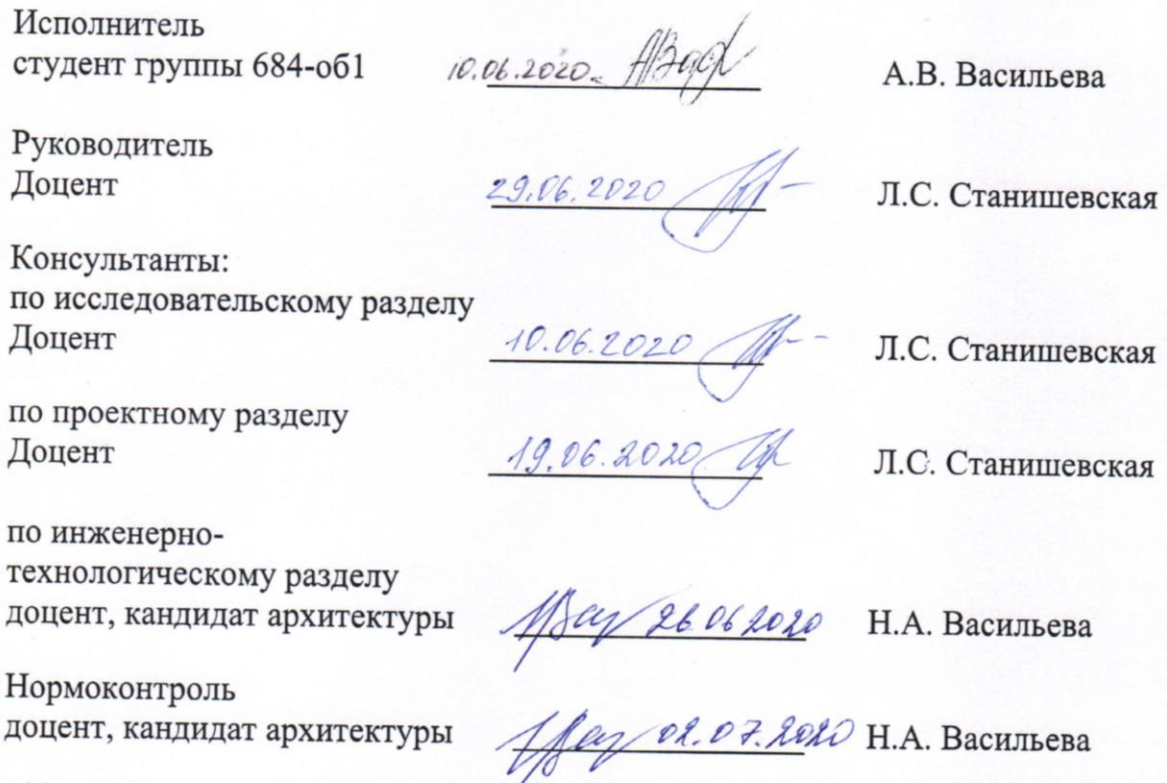 Исполнитель
студент группы 684-об1 10.06.2020 А.В. Васильева
Руководитель
Доцент 29.06.2020 Л.С. Станишевская
Консультанты:
по исследовательскому разделу
Доцент 10.06.2020 Л.С. Станишевская
по проектному разделу
Доцент 19.06.2020 Л.С. Станишевская
по инженерно-
технологическому разделу
доцент, кандидат архитектуры 26 06 2020 Н.А. Васильева
Нормоконтроль
доцент, кандидат архитектуры 02.07.2020 Н.А. Васильева